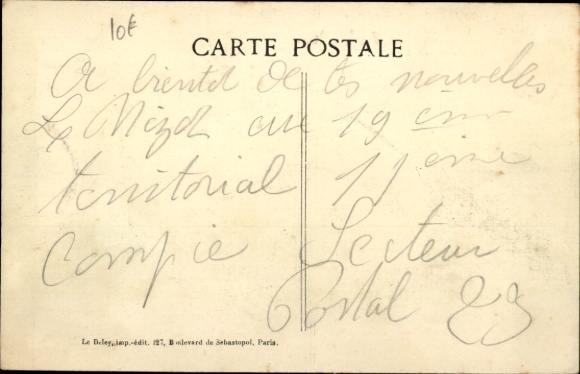 10€
CARTE POSTALE
A bientot de tes nouvelles
au 19 eme
territorial 11 eme
Compie Secteur
Postal 23
Le Deley, imp.-édit. 127, Boulevard de Sébastopol, Paris.